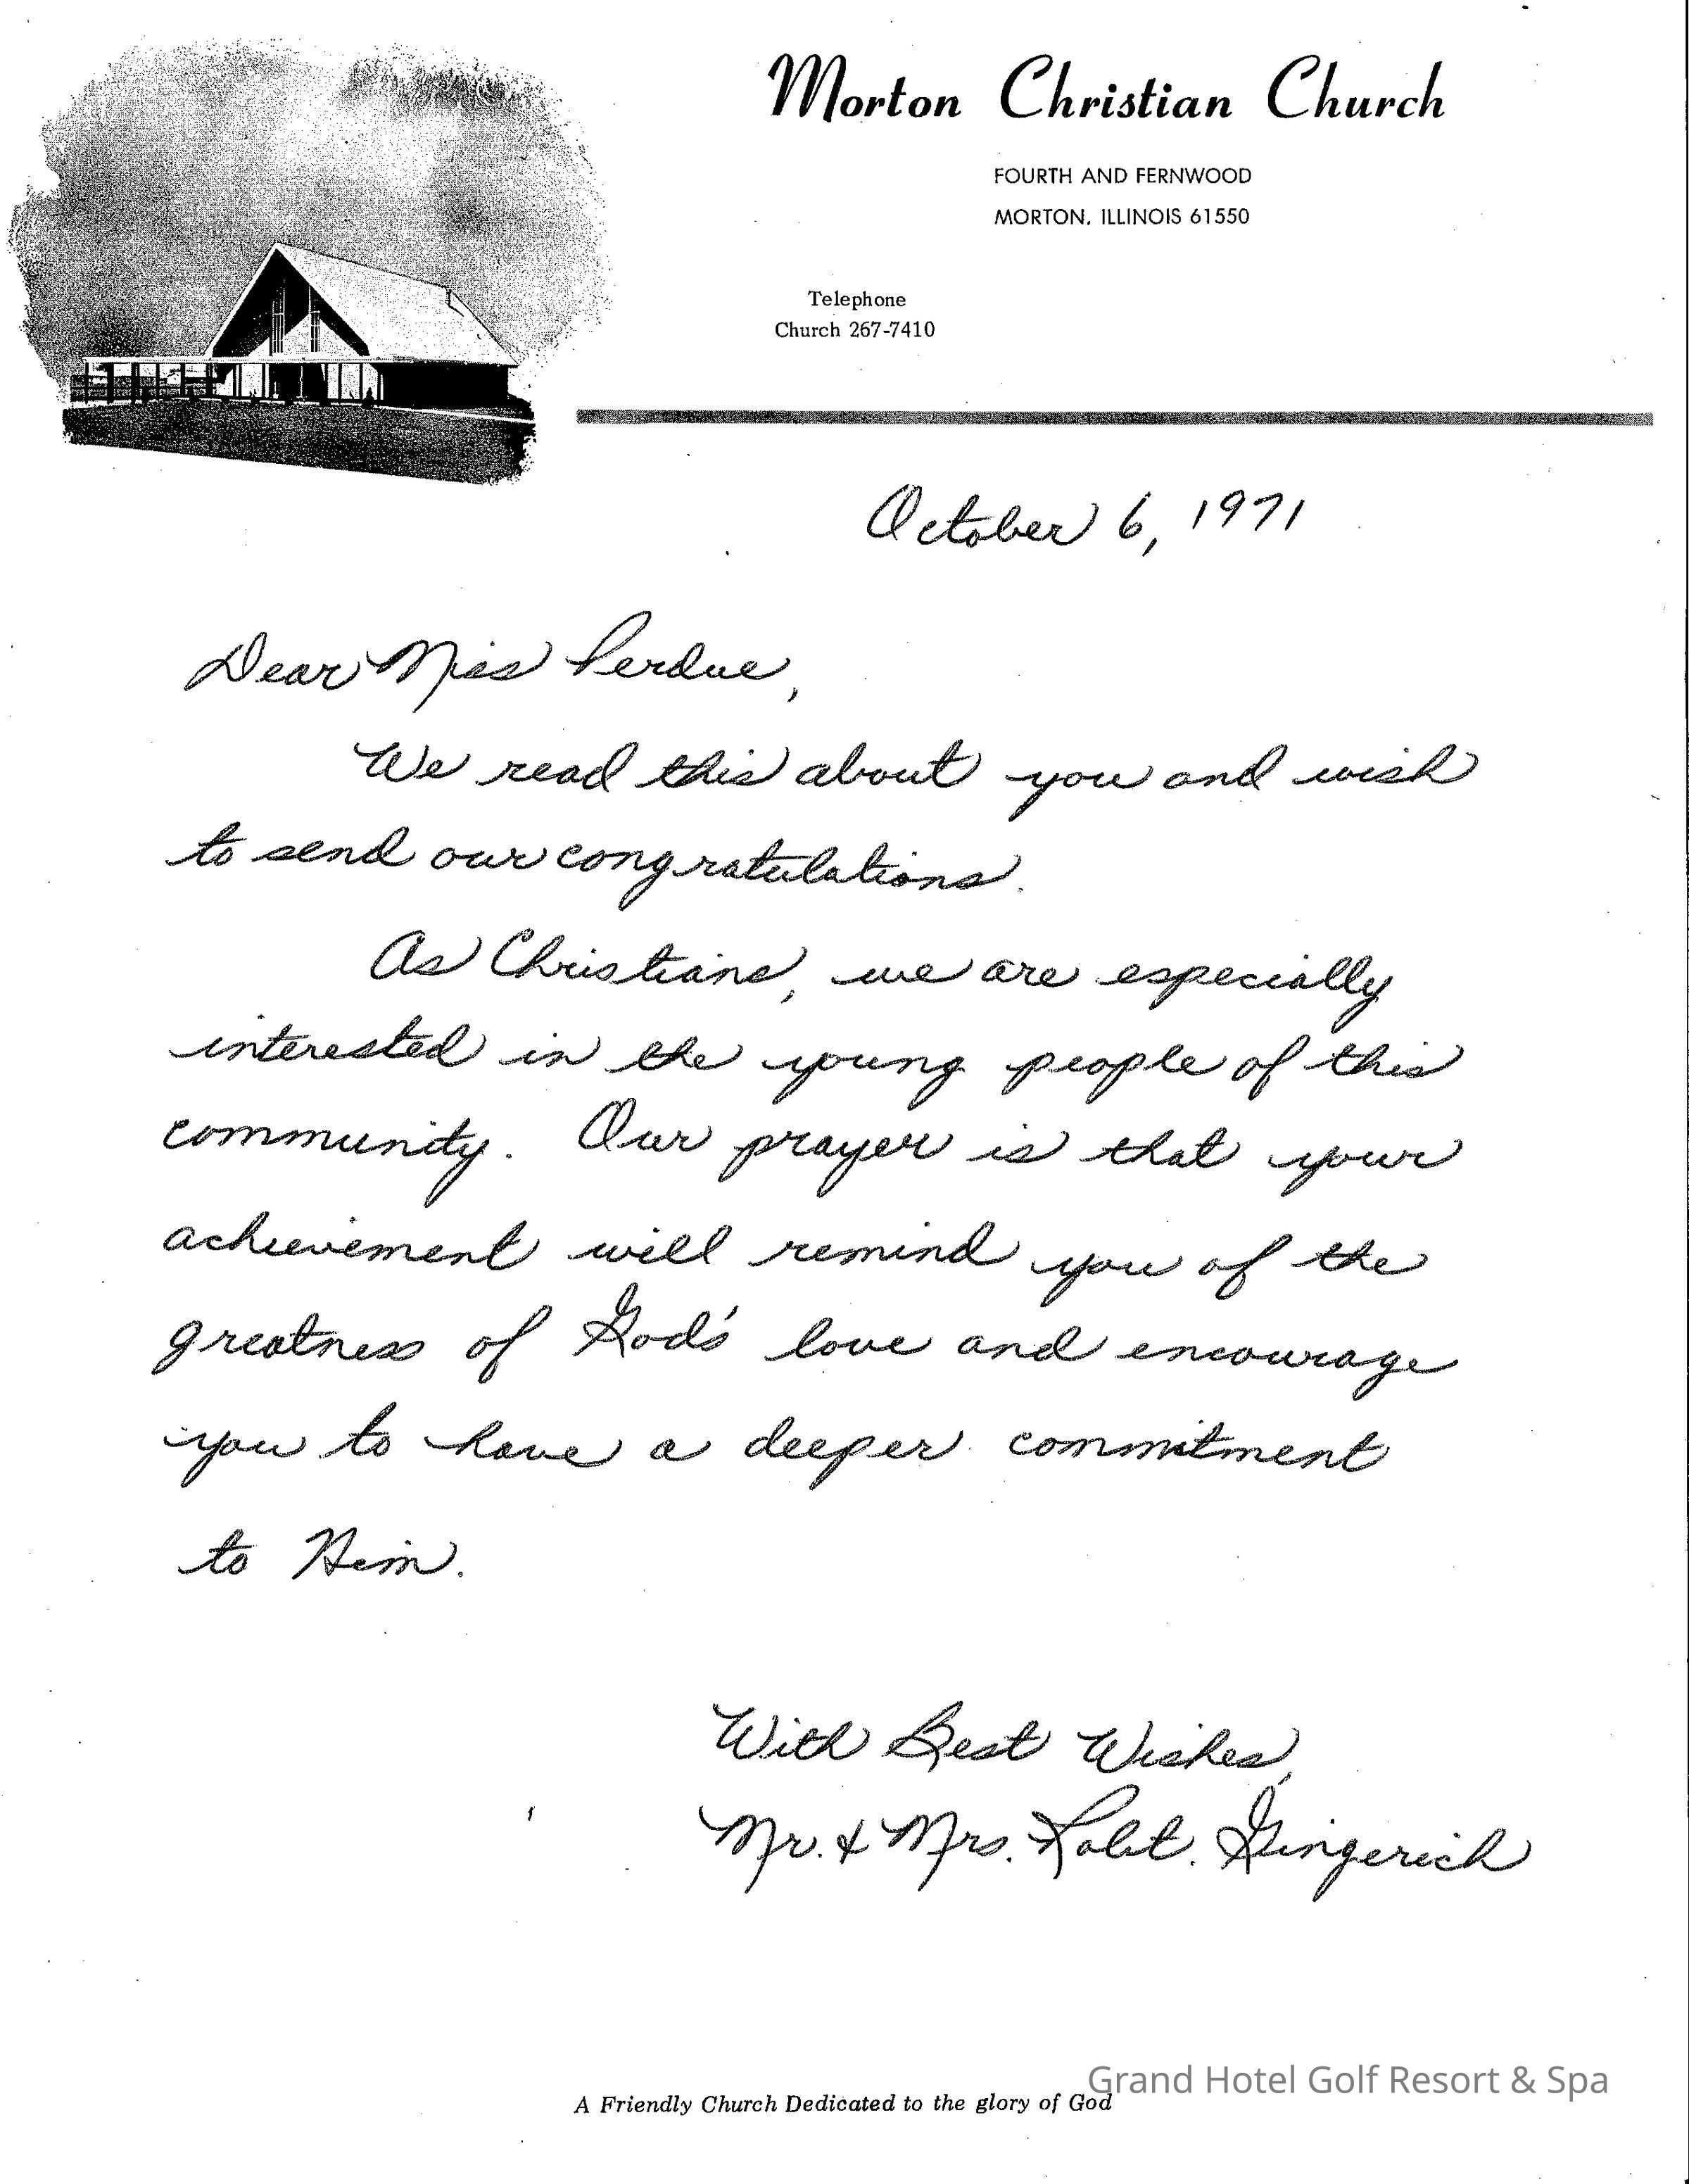 Morton Christian Church
FOURTH AND FERNWOOD
MORTON, ILLINOIS 61550
Telephone
Church 267-7410
October 6, 1971
Dear Miss Perdue,
We read this about you and wish
to send our congratulations.
As Christians, we are especially
interested in the young people of this
community. Our prayer is that your
achievement will remind you of the
greatness of God's love and encourage
you to have a deeper commitment
to Him.
With Best Wishes,
Mr. & Mrs. Robt. Gingerich
Grand Hotel Golf Resort & Spa
A Friendly Church Dedicated to the glory of God